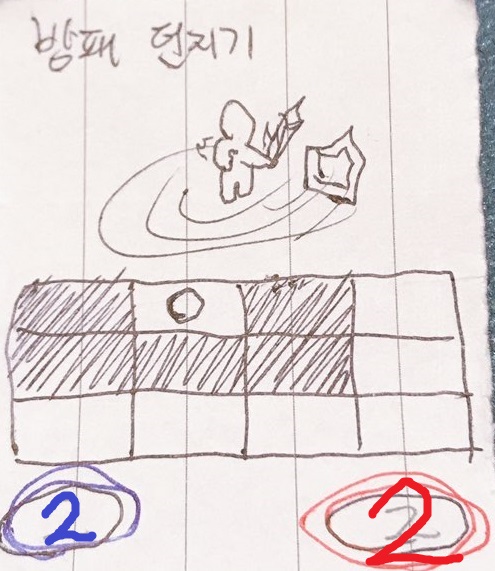 방패 던지기
2 2